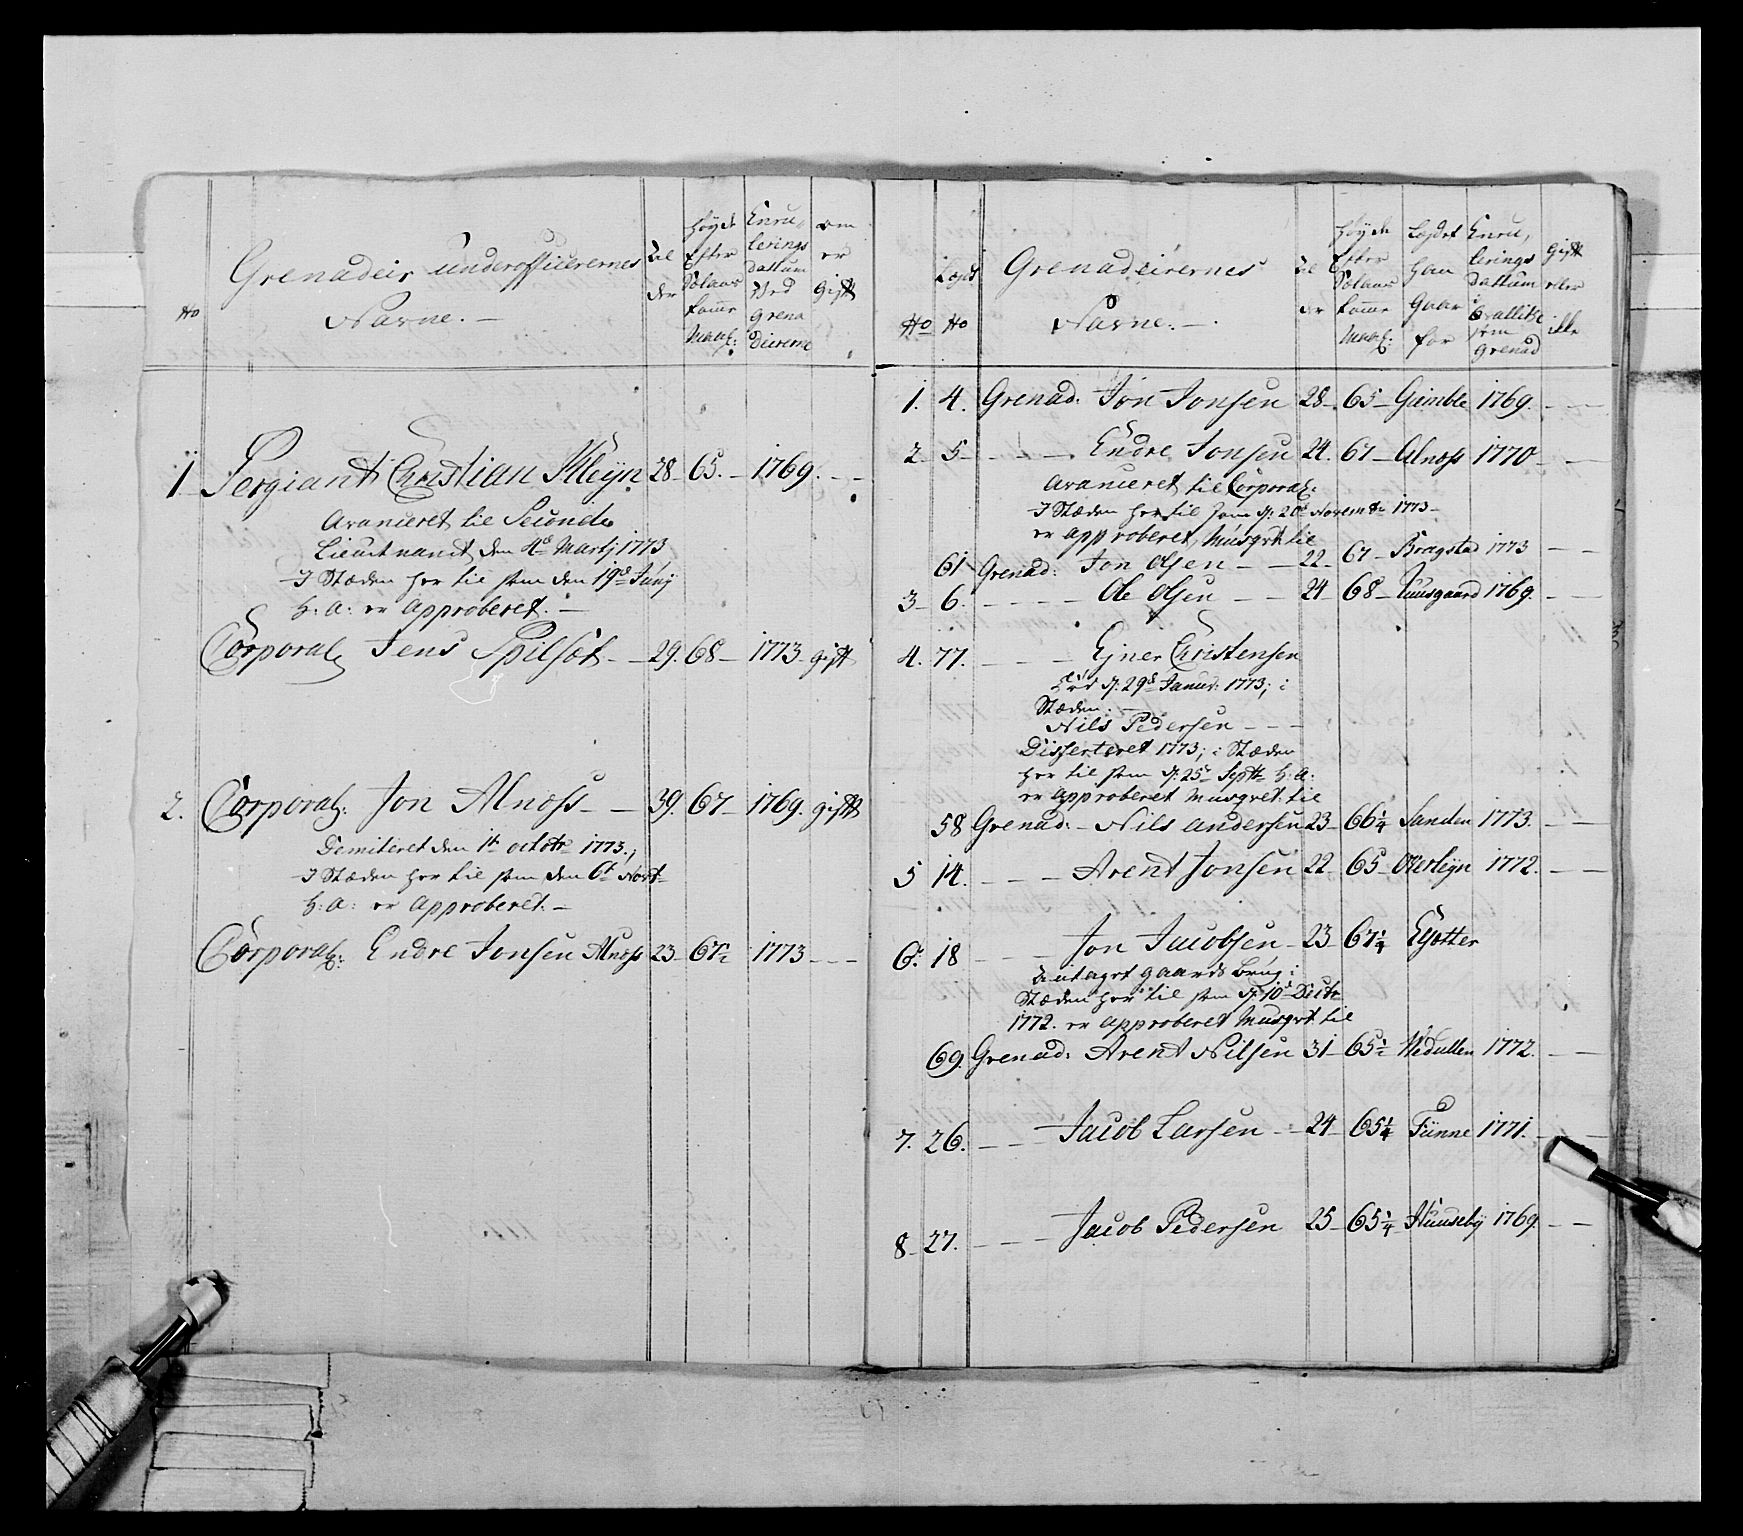 No
Grenadeir underofficerernes
Navne. —
Al
der
Høyde
Efter
Sølans
komr
Maal:
Enru,
lerings
Dattum
Ved
Grena
deirerne
om
er
Gift
1 Sergiant Christian Kleÿn 28 — 65. — 1769. — —
Avanceret til Seconde
Lieutnandt den 4de Martj 1773
I Stæden her til som den 19de Junj
h: a: er Approberet. —
Corporal Jens Spilset — 29. 68 — 1773 gift
2. Corporal: Jon Alness — — 39. 67 — 1769. gift
Demiteret den 1te octobr 1773.;
I Stæden her til som den 6t Novr
h: a: er Approberet. —
Corporal: Endre Jonsen Alness 23 — 67½ 1773 — — —
No
Lægds
No
Grenadeirernes
Navne. — .
Al
er
Høyde
Efter
Sølans
komr
Maal:
Legdet
han
Gaar
for
Enru,
lerings
Dattum
som
Grenad
Gift
eller
ikke
1. 4. Grenad: Jon Jonsen 28 — 65 — Gimble 1769. — —
2. 5 — — — Endre Jonsen 24. 67 — Alness 1770 — —
Avanceret til Corporal:
I Stæden her til som d: 20de Novembr 1773 —
er approberet Musqvt: til
61 Grenad: Jon Olsen — — 22 — 67 — Bragstad 1773 — —
3 — 6. — — — — Ole Olsen — — 24 — 68 — Tuusgaard 1769. — —
4. 77. — — — Ejner Christensen
Død d: 29de Januar: 1773; i
Stæden. —
Nils Pedersen — — —
Disserteret 1773; i Stæden
her til som d: 25de Septbr h: a:
er Approberet Musqvet: til
58 Grenad: — Nils Andersen 23 — 66¼ Sanden 1773. — —
5 14. — — — Arent Jonsen 22 — 65 — Oterleÿn 1772. — —
6. 18 — — — Jon Jacobsen — 23 — 67¼ Eÿetter
Antaget Gaards Brug i
Stæden her til som d: 10de Decbr
1772. er Approberet Musqvt til
69. Grenad: Arent Nilsen 31 — 65½ Vedullen 1772. — —
7. 26. — — Jacob Larsen — — 24 — 65¼ Tünne 1771. — —
8. 27. — — — Jacob Pedersen 25 — 65¼ Huusebÿ 1769. — —